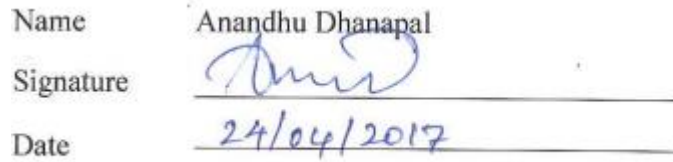 Name Anandhu Dhanapal
Signature
Date 24/04/2017